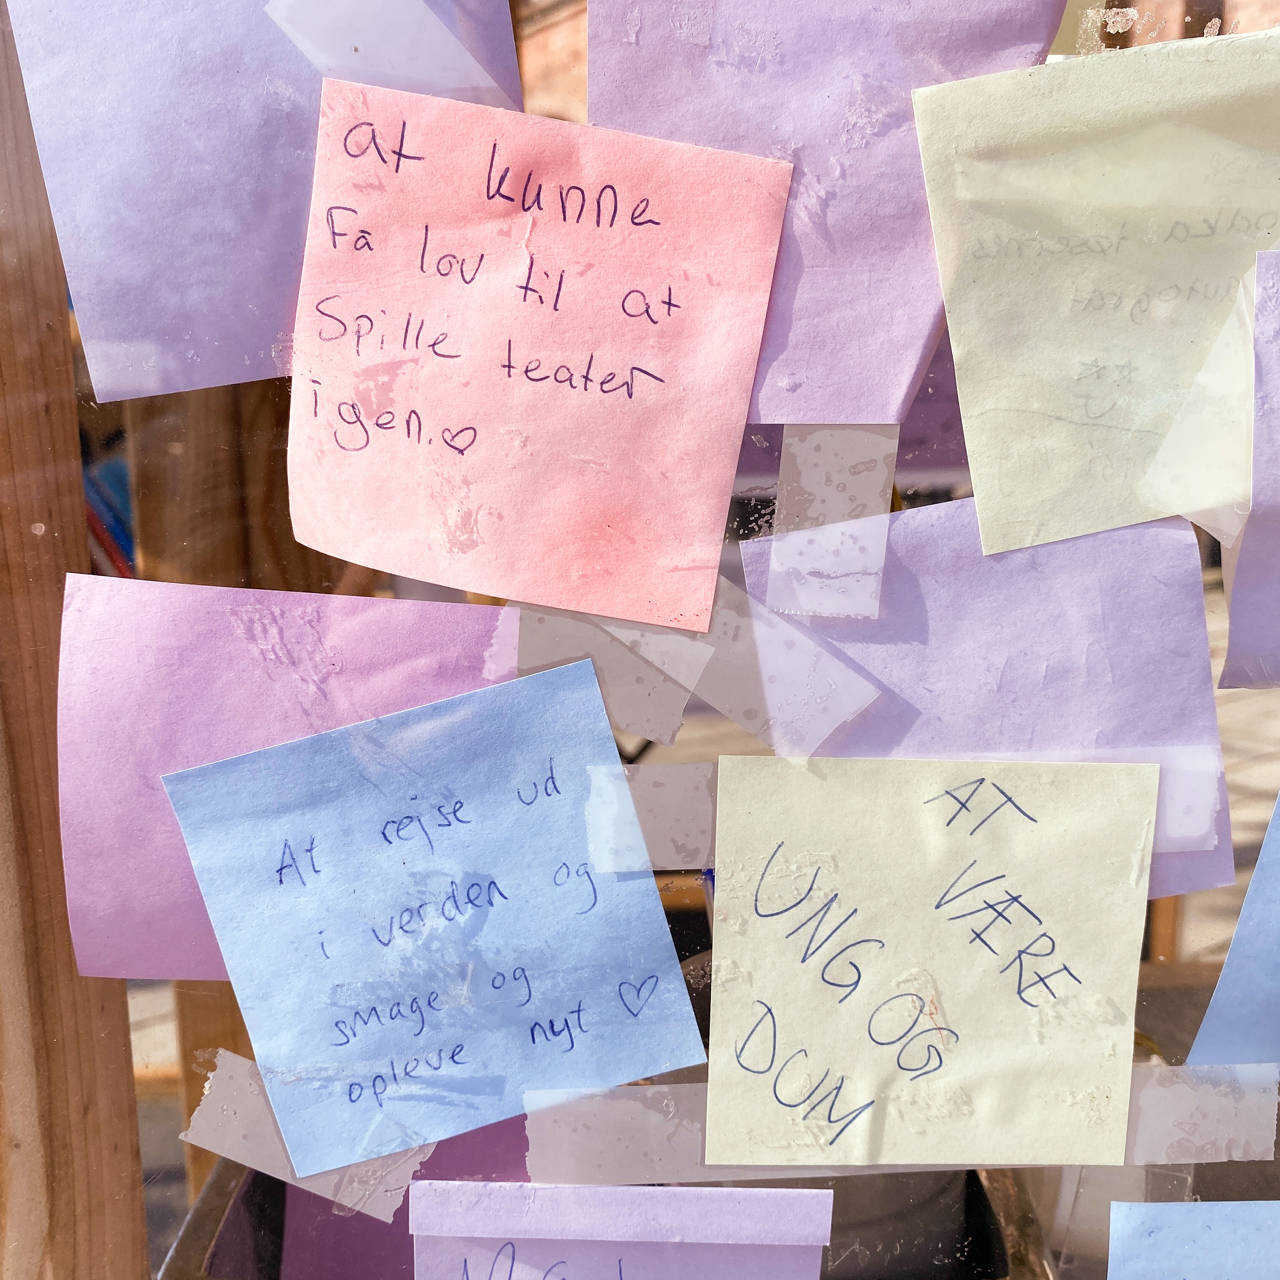 at kunne
Få lov til at
Spille teater
igen.♡
At rejse ud
i verden og
smage og
opleve nyt ♡
AT
VÆRE
UNG OG
DUM